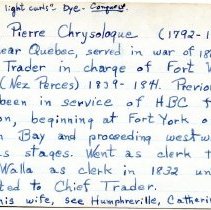 light curls" Dye- Conquest
Pierre Chrysologue (1792-1
ear Quebec, served in war of 18
Trader in charge of Fort
(Nez Perces) 1839-1841. Previou
been in service of HBC f
on, beginning at Fort York o
n Bay and proceeding westwa
us stages. Went as clerk t
Walla as clerk in 1832 un
ted to Chief Trader.
his wife, see Humphreville, Catherin